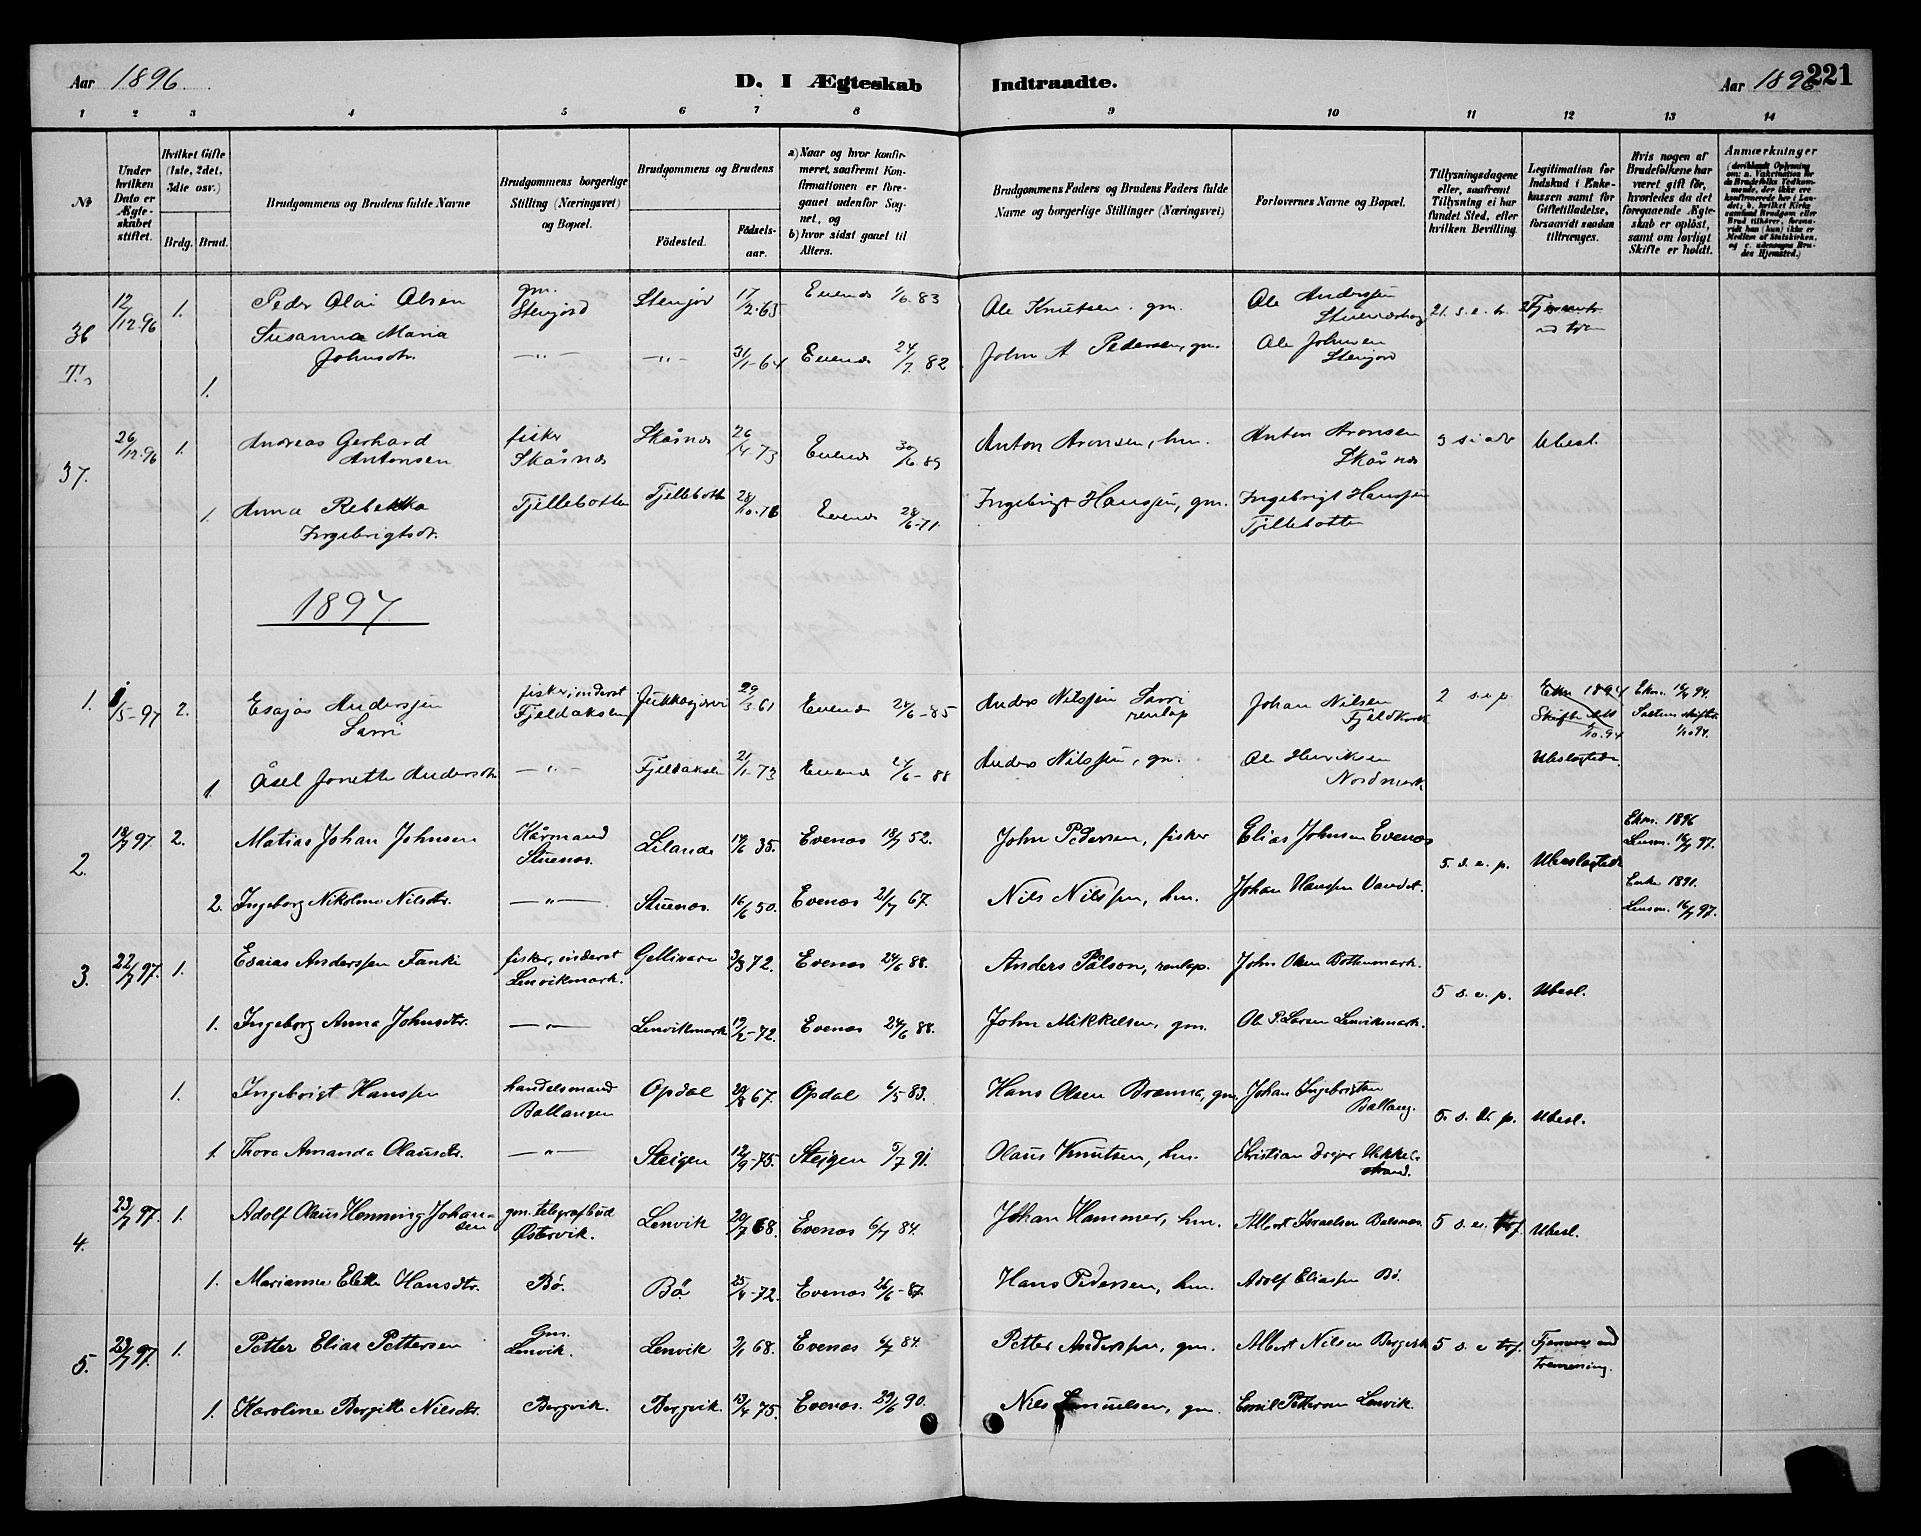 Aar 1896.
D. I Ægteskab Indtraadte.
Aar 1896 221
1 2 3 4 5 6 7 8 9 10 11 12 13 14
No
Under hvilken Dato er Ægteskabet stiftet.
Hvilket Gifte (1ste, 2det, 3die osv.)
Brdg. Brud.
Brudgommens og Brudens fulde Navne
Brudgommens borgerlige Stilling (Næringsvei) og Bopæl.
Brudgommens og Brudens
Födested. Födsels-aar.
a) Naar og hvor konfirmeret, saafremt Konfirmationen er foregaaet udenfor Sognet, og
b) hvor sidst gaaet til Alters.
Brudgommens Faders og Brudens Faders fulde Navne og borgerlige Stillinger (Næringsvei)
Forlovernes Navne og Bopæl.
Tillysningsdagene eller, saafremt Tillysning ei har fundet Sted, efter hvilken Bevilling.
Legitimation for Indskud i Enkekassen samt for Giftetilladelse, forsaavidt saadan tiltrænges.
Hvis nogen af Brudefolkene har været gift för, hvorledes da det foregaaende Ægteskab er oplöst, samt om lovligt Skifte er holdt.
Anmærkninger
36 12/12.96 1. Peder Olai Olsen gm. Stenjord Stenjor 17/2.65 Evenes 1/6.83 Ole Knutsen, gm. Ole Anderssen 21. s. e. tr.
1. Susanna Maria Johnsdtr. —„— —„— 31/1-64 Evenes 24/7.82 John A Pedersen, gm. Ole Johnsen Stenjord
37. 26/12.96 1. Andreas Gerhard Antonsen fisker Skåsnes Skåsnes 26/4.73 Evenes 30/6.89 Anton Aronsen, hm. Anton Aronsen Skånes 3 s i adv Ubesl.
1. Anna Rebekka Ingebrigtsdtr. Fjellebotten Fjellebotten 28/10.76 Evenes 28/6-71. Ingebrigt Hanssen, gm. Ingebrigt Hanssen Fjellebotten
1897
1. 1/5-97 2. Esajas Anderssen Sarri fisker, inderst Fjeldaksen Jukkasjervi 29/3.61 Evenes 24/6-85 Anders Nilssen Sarri renlap Johan Nilsen 2 s. e. p. Ekm 1894 Skifte holdt 1/10.94 Ekm. 16/4 94. 1/10 94.
1. Åsel Jonette Andersdtr —„— Fjeldaksen 21/1-73 Evenes 24/6-88 Anders Nilssen, gm. Ole Henriksen Nordmark Ubeslægtede.
2. 18/7 97 2. Matias Johan Johnsen Kårmand Stuenes. Lilande 14/6 35. Evenes 18/7 52. John Pedersen, fisker Elias Johnsen Evenes 5. s. e. p. Ubeslægtede Ekm. 1896 Lensm. 16/7 97.
2. Ingeborg Nikoline Nilsdtr. —„— Stuenes. 16/6 50. Evenes 21/7 67. Nils Nilssen, hm. Johan Hanssen Vandet. Enke 1891. Lensm. 16/7 97.
3. 22/7 97. 1. Esaias Anderssen Fanki fisker, inderst Lenvikmark. Gellivare 3/3 72. Evenes 24/6 88. Anders Pålson, renlap. John Olsen Bottenmark. 5 s. e. p. Ubesl.
1. Ingeborg Anna Johnsdtr. —„— Lenvikmark 19/2-72. Evenes 24/6 88. John Mikkelsen, gm. Ole P. Larsen Lenvikmark.
1. Ingebrigt Hanssen handelsmand Ballangen Opdal 20/8 67. Opdal 6/5 83. Hans Olsen Brænna, gm. Johan Ingebrigtsen Ballang. 5. s. e. p. Ubesl.
1. Thora Amanda Olausdtr. —„— Steigen 12/9-75. Steigen 5/7 91. Olaus Knutsen, hm. Kristian Dreyer Hekkelstrand.
4. 23/7 97. 1. Adolf Olaus Henning Johansen gm. telegrafbud Østervik. Lenvik 20/7 68. Evenes 6/7 84. Johan Hammer, hm. Albert Israelsen Balsnes. 5 s. e. trf. Ubesl.
1. Marianne Elette Hansdtr. Bø. Bø. 25/4-72. Evenes 26/6-87. Hans Pedersen, hm. Adolf Eliassen Bø.
5. 23/7 97. 1. Petter Elias Pettersen Gm. Lenvik. Lenvik 2/1 68. Evenes 6/7 84. Petter Anderssen, gm. Albert Nilsen Bergvik 5 s. e trf. Fjernere end tremening.
1. Karoline Bergitte Nilsdtr. Bergvik. Bergvik. 13/4 75. Evenes. 29/6 90. Nils Samuelsen, gm. Emil Pettersen Lenvik.